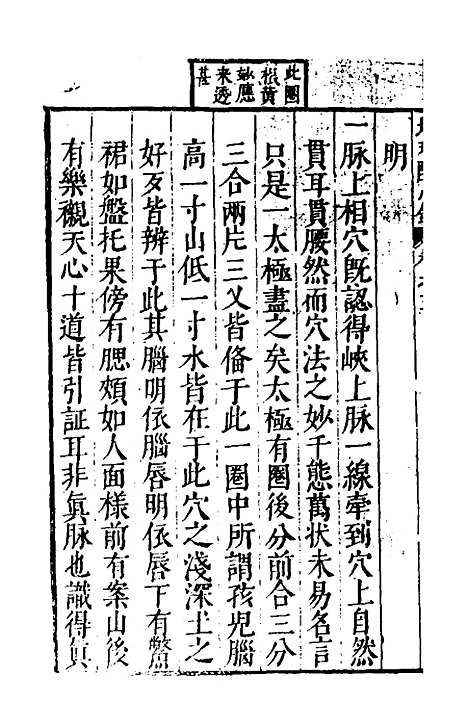 此圈
根黃
妙應
來透
甚
明
一脉上相穴既認得峽上脉一線牽到穴上自然
貫耳貫腰然而穴法之妙千態萬狀未易名言
只是一太極盡之矣太極有圈後分前合三分
三合兩片三叉皆俻于此一圈中所謂孩兒腦
高一寸山低一寸水皆在于此穴之淺深土之
好歹皆辨于此其腦明依腦唇明依唇下有鱉
裙如盤托果傍有腮頰如人面樣前有案山後
有樂襯天心十道皆引証耳非眞脉也識得眞